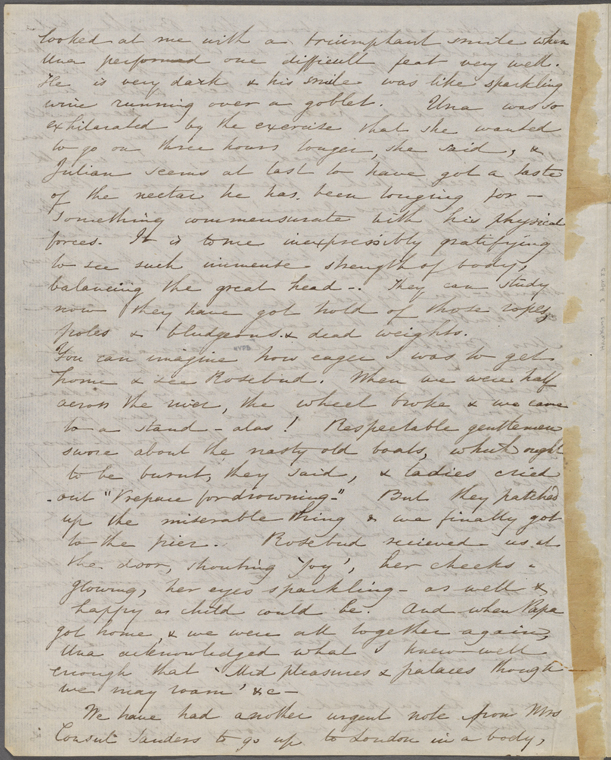 looked at me with a triumphant smile when
Una performed one difficult feat very well.
He is very dark & his smile was like sparkling
wine running over a goblet. Una was so
exhilarated by the exercise that she wanted
to go on three hours longer, she said, &
Julian seems at last to have got a taste
of the nectar he has been longing for —
something commensurate with his physical
forces. It is to me inexpressibly gratifying
to see such immense strength of body,
balancing the great head.. They can study
now they have got hold of those ropes,
poles & bludgeons & dead weights.
You can imagine how eager I was to get
home & see Rosebud. When we were half
across the river, the wheel broke & we came
to a stand - alas! Respectable gentlemen
swore about the nasty old boats, which ought
to be burnt, they said, & ladies cried
out "Prepare for drowning." But they patched
up the miserable thing & we finally got
to the pier. Rosebud recieved us at
the door, shouting 'Joy', her cheeks -
glowing, her eyes sparkling - as well &
happy as child could be. And when Papa
got home, & we were all together again,
Una acknowledged what I knew well
enough that 'Mid pleasures & palaces though
we may roam' &c —
We have had another urgent note from Mrs
Consul Sanders to go up to London in a body,